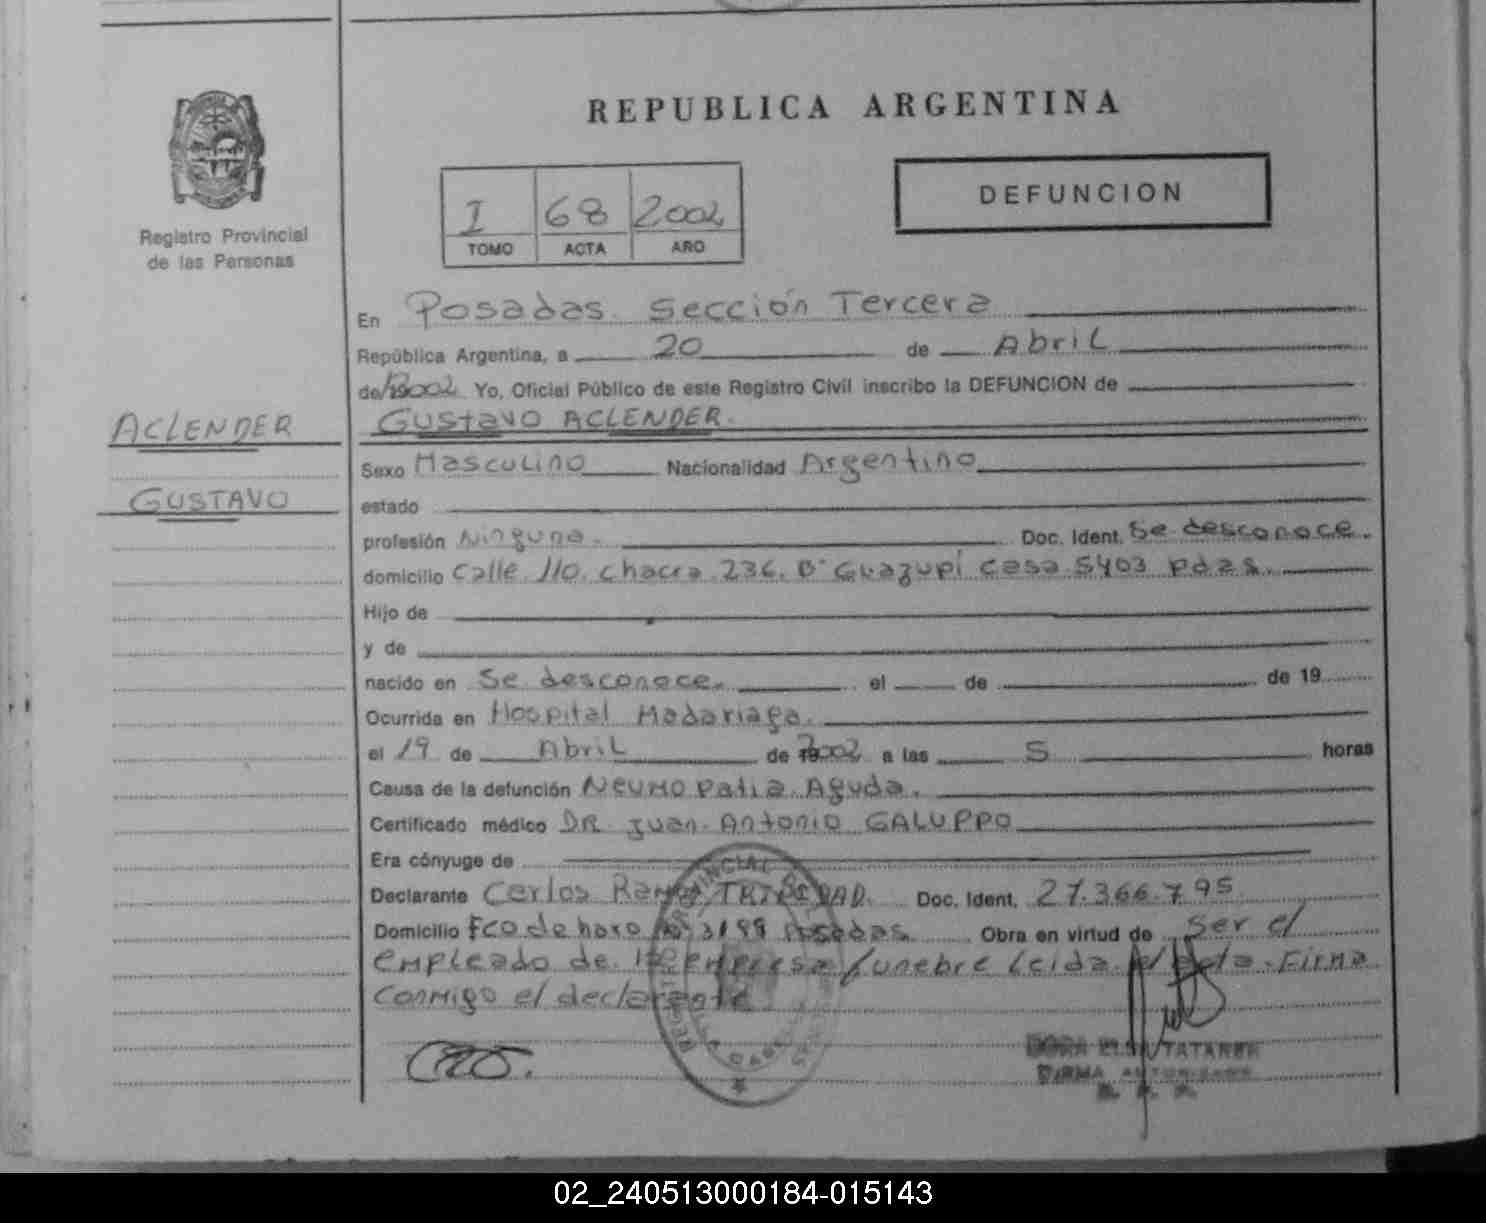 REPUBLICA ARGENTINA
Registro Provincial
de las Personas
I 68 2002
TOMO ACTA AÑO
DEFUNCION
En Posadas. Sección Tercera
República Argentina, a 20 de Abril
de 2002 Yo, Oficial Público de este Registro Civil inscribo la DEFUNCION de
ACLENDER
GUSTAVO
Gustavo ACLENDER.
Sexo Masculino Nacionalidad Argentino
estado
profesión Ninguna. Doc. Ident. Se desconoce.
domicilio Calle 110. chacra 236. B° Guazupí casa 5403 pdas.
Hijo de
y de
nacido en Se desconoce. el de de 19
Ocurrida en Hospital Madariaga.
el 19 de Abril de 2002 a las 5 horas
Causa de la defunción Neumopatia Aguda.
Certificado médico DR. Juan Antonio GALUPPO
Era cónyuge de
Declarante Carlos TRINIDAD. Doc. Ident. 27.366.795
Domicilio Fco de haro N° 3199 Posadas Obra en virtud de ser el
empleado de la empresa funebre leida el acta. Firma
conmigo el declarante
DORA ELSA TATAREN
FIRMA AUTORIZADA
02_240513000184-015143